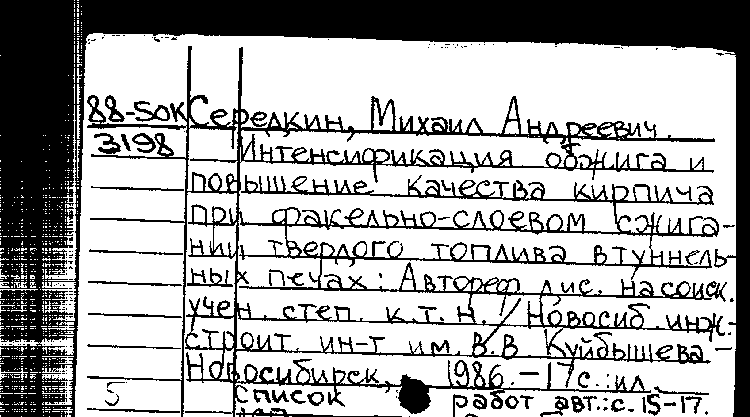 88-50К Середкин, Михаил Андреевич.
3198 Интенсификация обжига и
повышение качества кирпича
при факельно-слоевом сжига-
нии твердого топлива в туннель-
ных печах: Автореф. дис. на соиск.
учен. степ. к.т.н. / Новосиб. инж.-
строит. ин-т им. В.В Куйбышева. -
Новосибирск, 1986. - 17с.: ил.
5 Список работ авт.: с. 15-17.